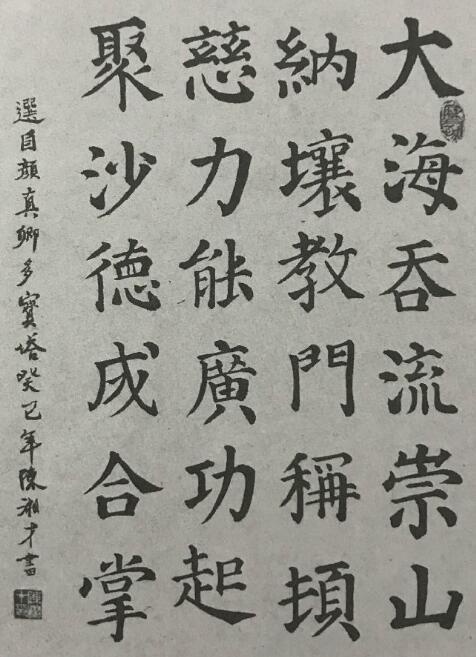 大海吞流崇山
納壤教門稱頓
慈力能廣功起
聚沙德成合掌
選自顏真卿多寶塔癸巳年陳才書